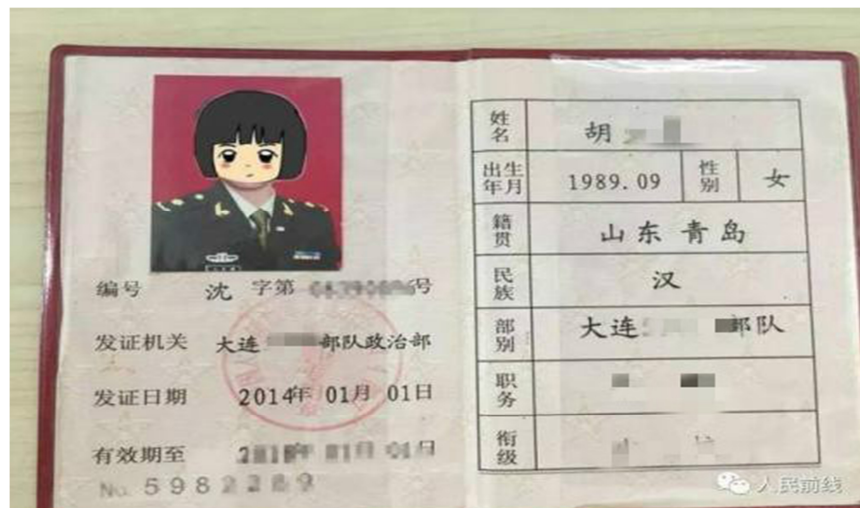 编号 沈 字第 号
发证机关 大连 部队政治部
发证日期 2014年 01月 01日
有效期至
No. 598
姓名 胡
出生年月 1989.09 性别 女
籍贯 山东 青岛
民族 汉
部别 大连 部队
职务
衔级
人民前线